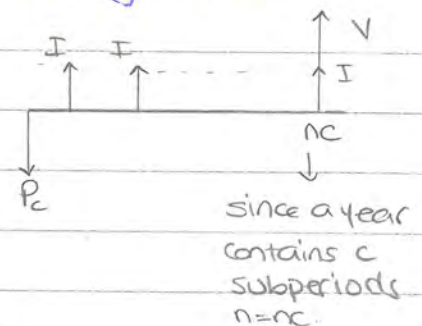 V
I I I
nc
Pc
since a year
contains c
subperiods
n=nc